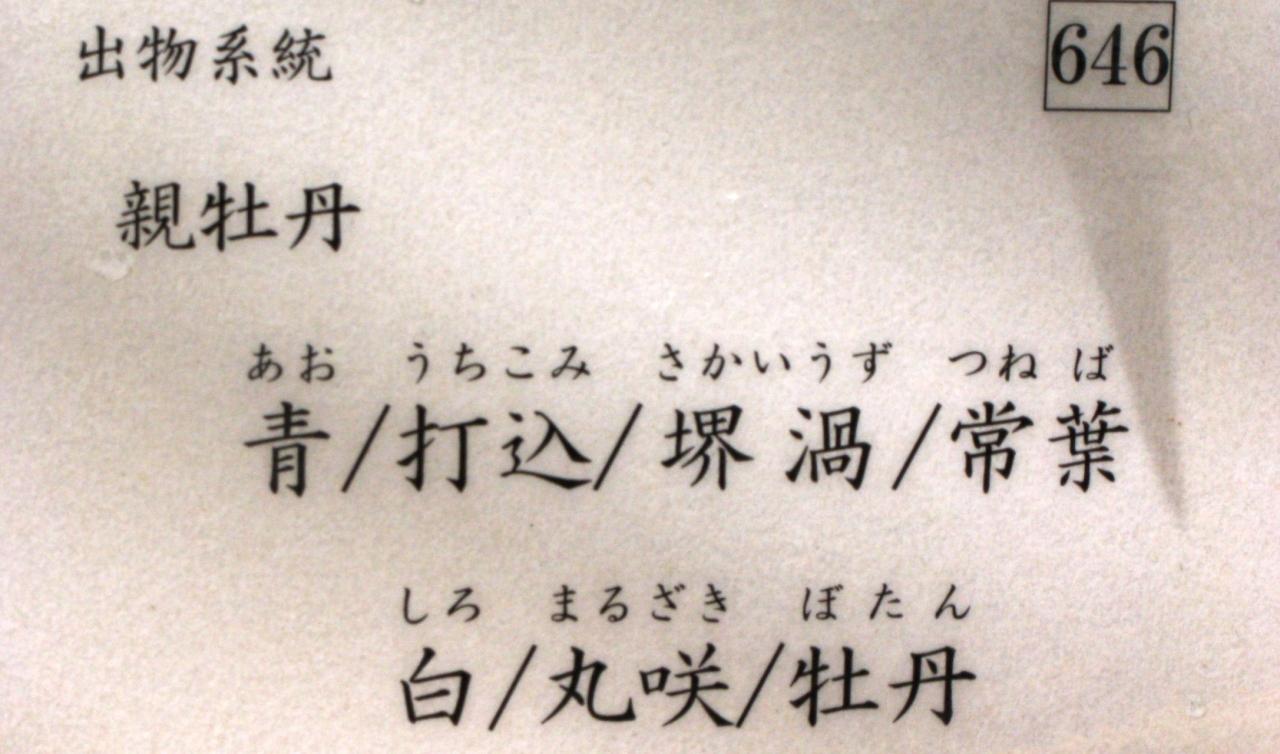 出物系統 646
親牡丹
あお うちこみ さかいうず つねば
青/打込/堺渦/常葉
しろ まるざき ぼたん
白/丸咲/牡丹